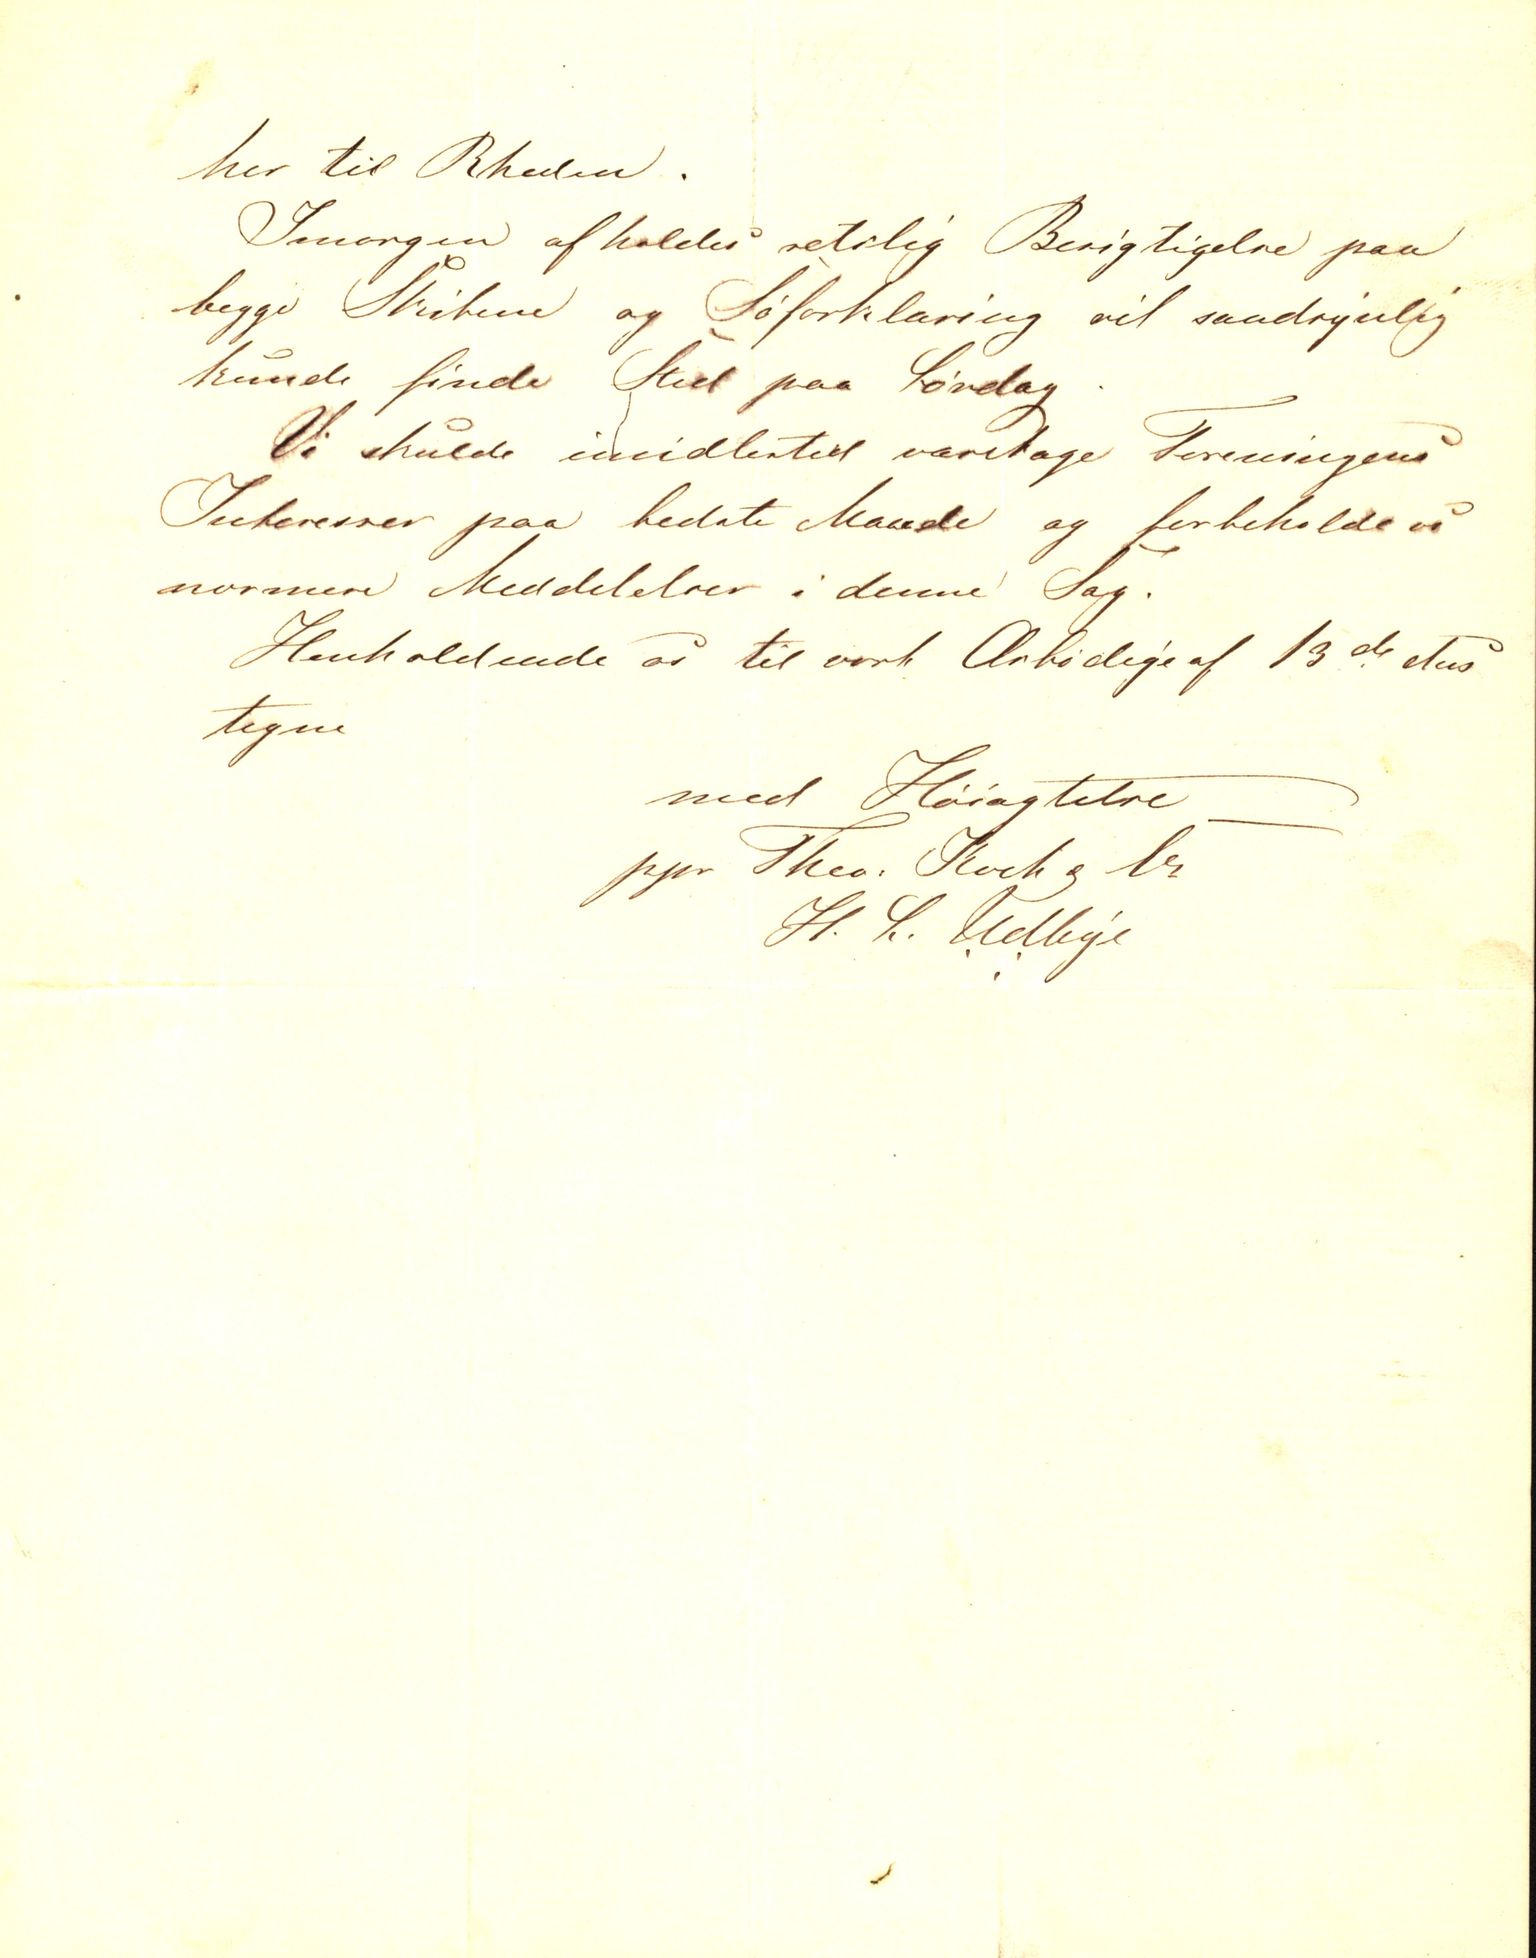 her til Rheden.
Imorgen afholdes retslig Besigtigelse paa
begge Skibene og Søforklaring vil sandsynlig
kunde finde Sted paa Lørdag.
Vi skulde imidlertid varetage Foreningens
Interesser paa bedste Maade og forbeholde os
nærmere Meddelelser i denne Sag.
Henholdende os til vort Ærbødige af 13 de ds
tegne
med Høiagtelse
ppr Theo. Koch & Co
H. L. Udbye